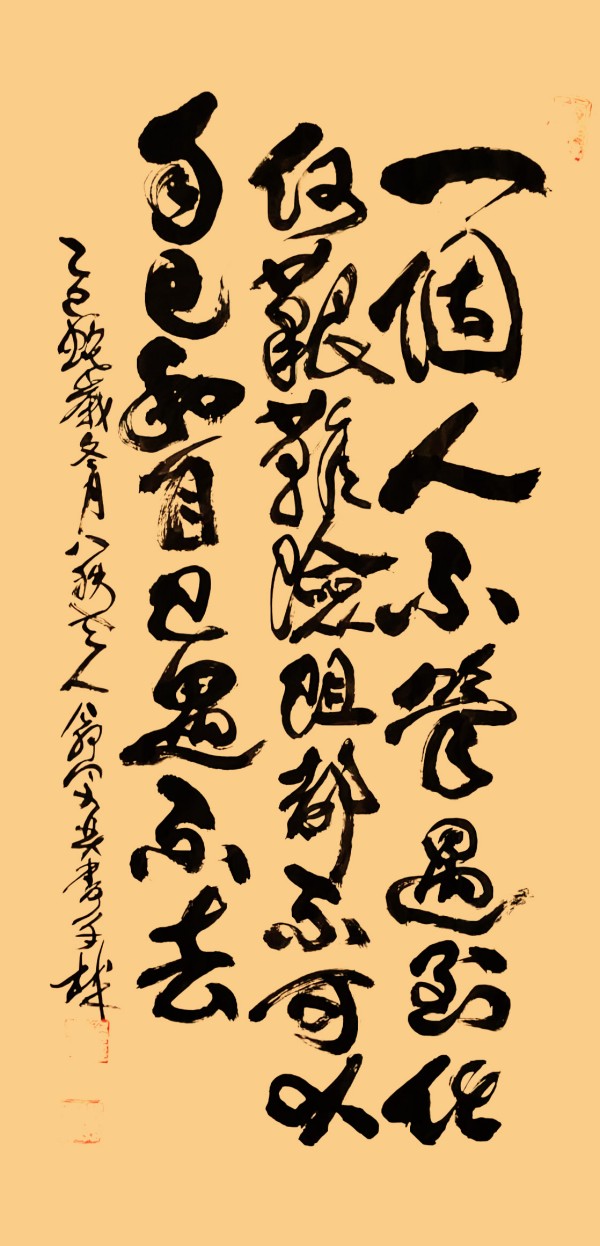 一個人不管遇到任
何艱難險阻都不可以
自己和自己過不去
乙巳蛇歲冬月八秩老人翁書于